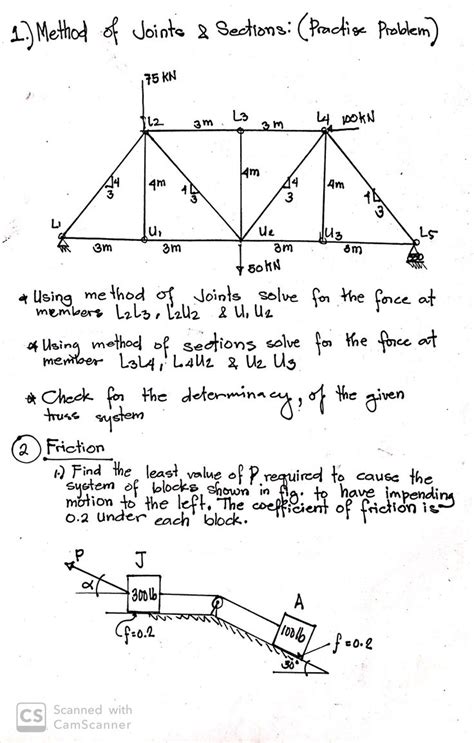 1.) Method of Joints & Sections: (Practise Problem)
75 KN
L2
3m
L3
3m
L4
100KN
4
3
4m
4
3
4m
4
3
4m
4
3
L1
U1
U2
U3
L5
3m
3m
3m
3m
50KN
* Using method of Joints solve for the force at
members L2L3, L2U2 & U1U2
* Using method of sections solve for the force at
member L3L4, L4U2 & U2U3
* Check for the determinacy, of the given
truss system
2 Friction
1.) Find the least value of P required to cause the
system of blocks shown in fig. to have impending
motion to the left. The coefficient of friction is
0.2 under each block.
P
J
α
300lb
A
100lb
f=0.2
f=0.2
30°
CS Scanned with
CamScanner